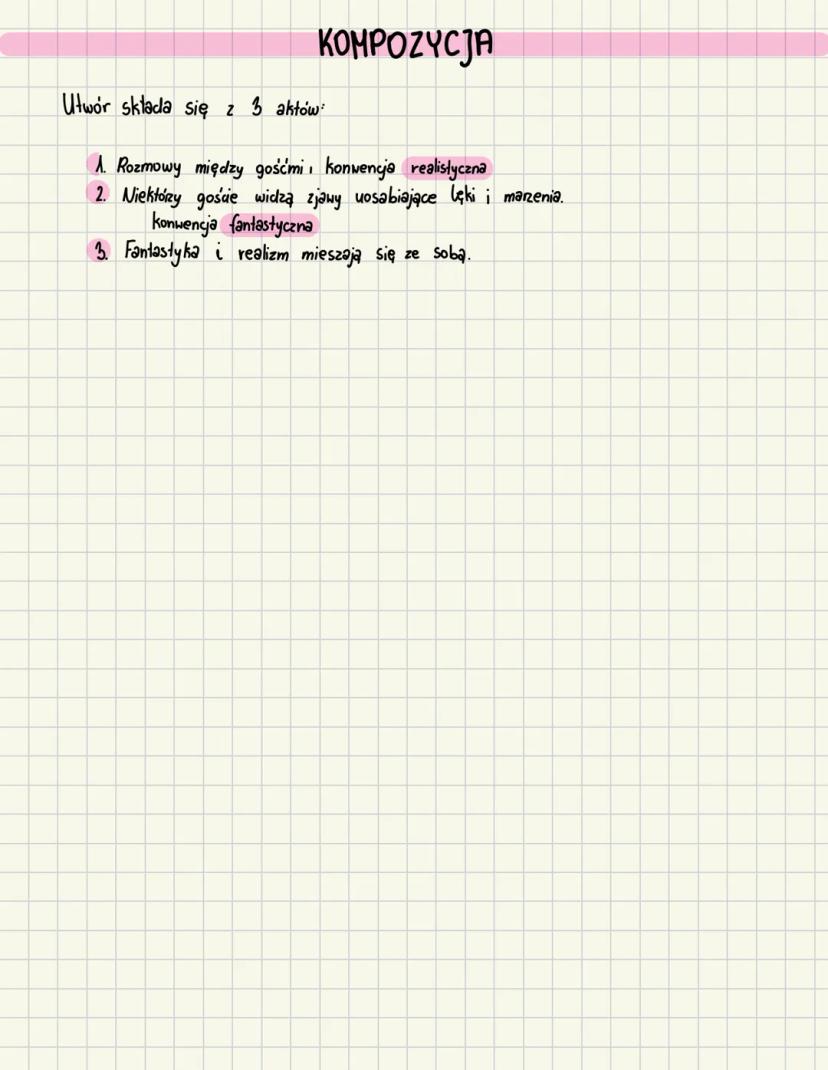 KOMPOZYCJA
Utwór składa się z 3 aktów:
1. Rozmowy między gośćmi, konwencja realistyczna
2. Niektórzy goście widzą zjawy uosabiające lęki i marzenia.
konwencja fantastyczna
3. Fantastyka i realizm mieszają się ze sobą.